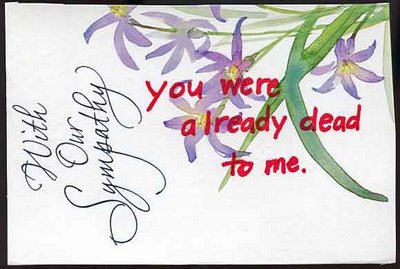 With
Our
Sympathy
you were
already dead
to me.